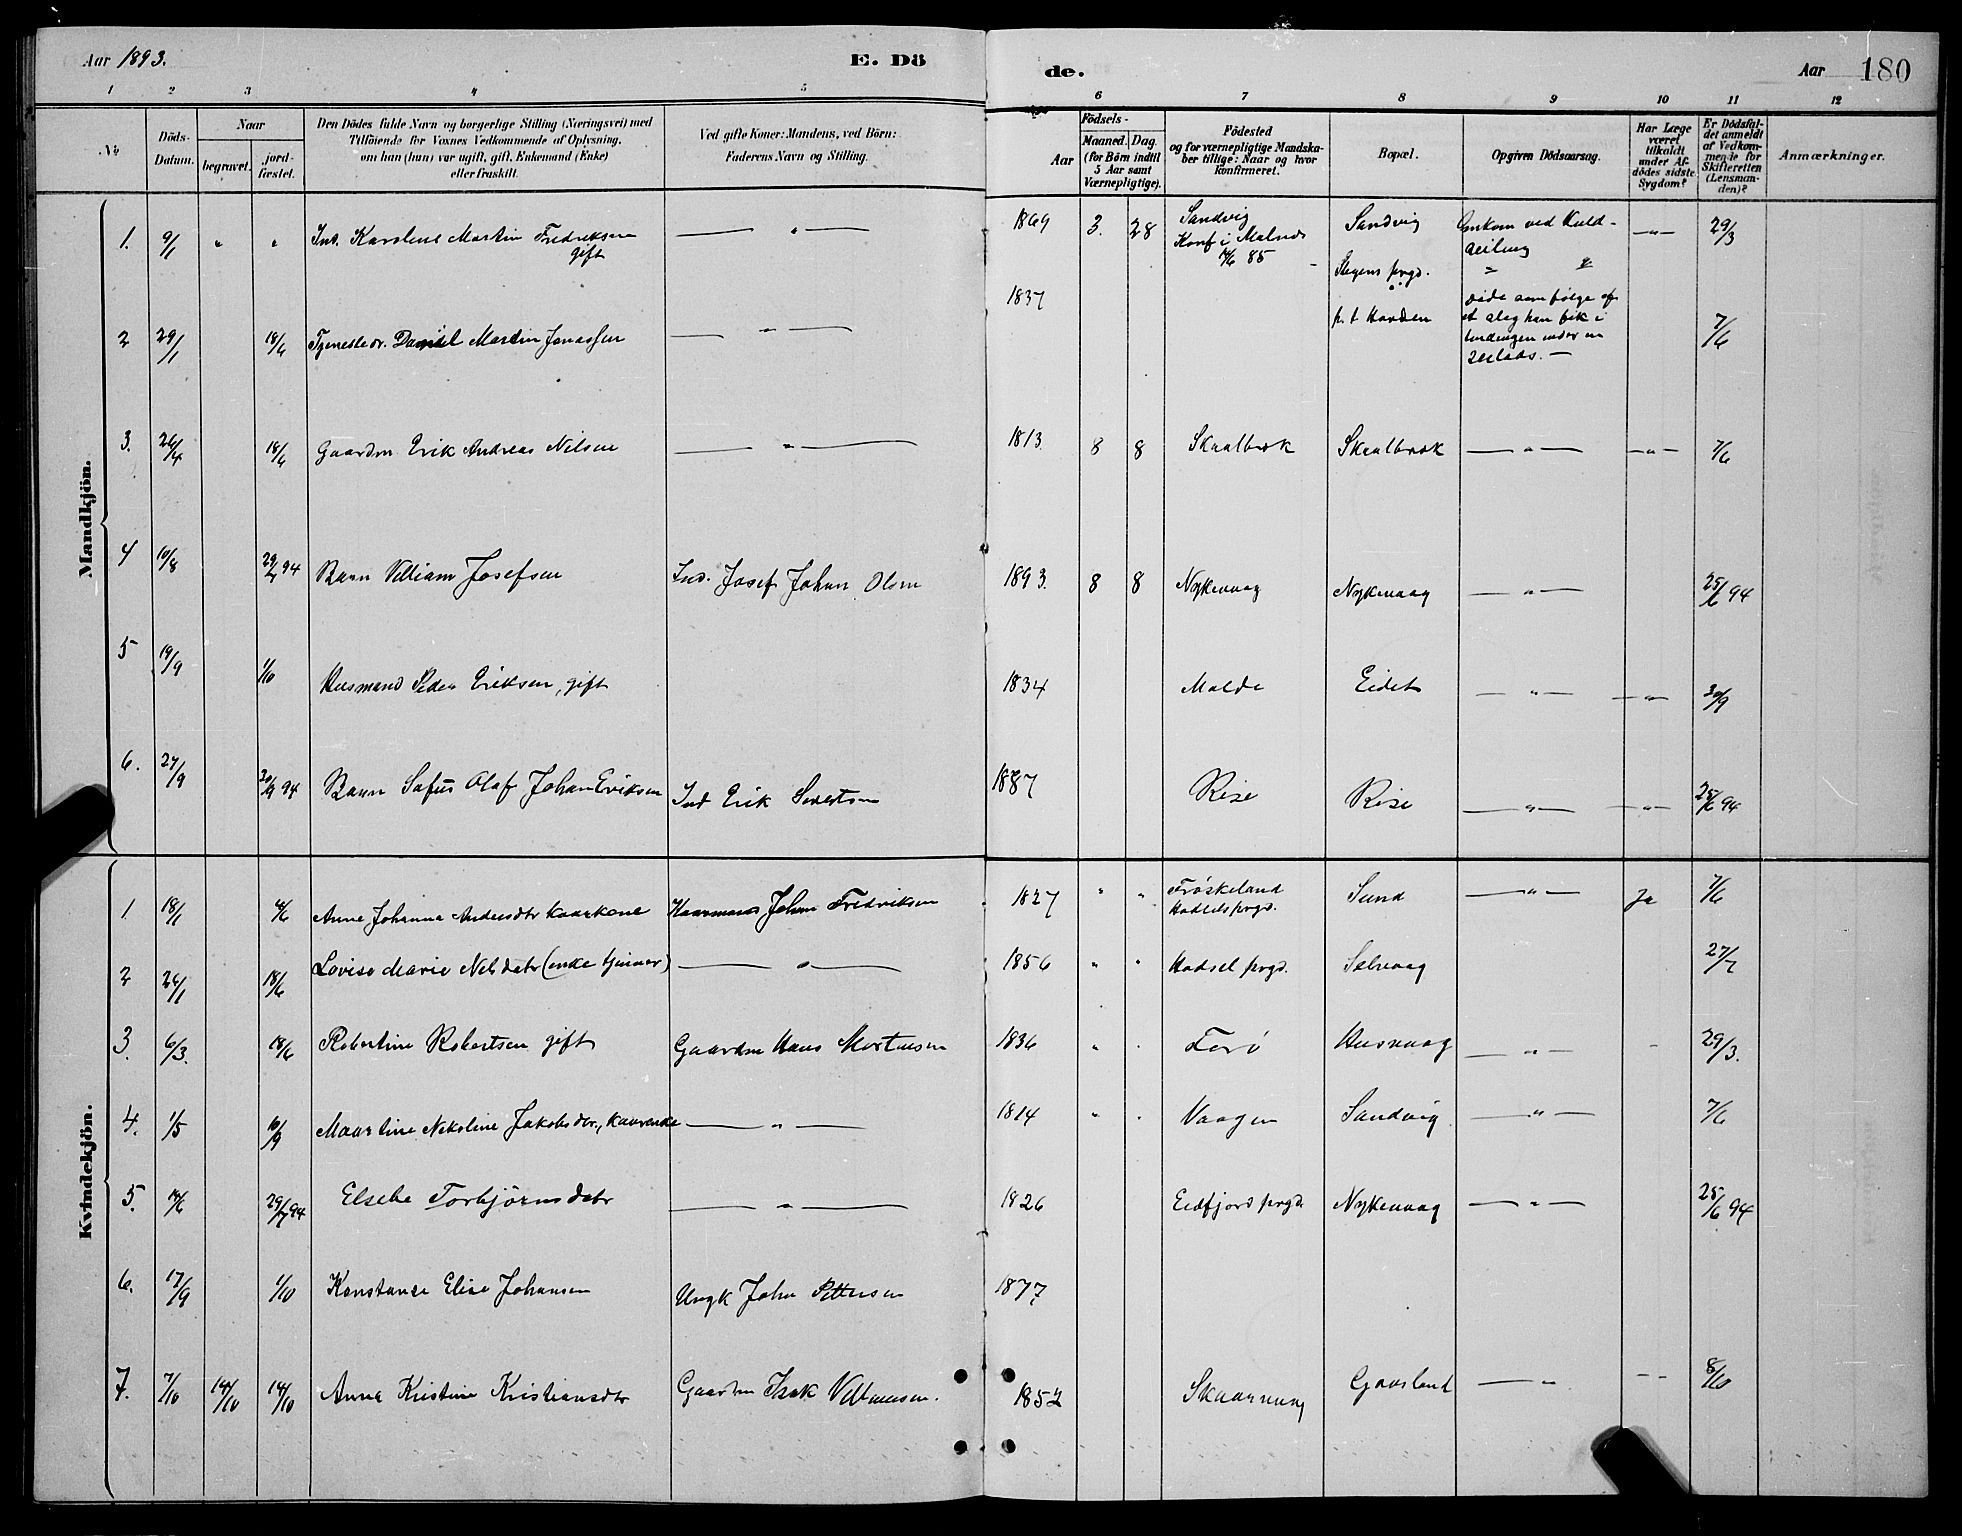 Aar 1893.
E. Dö
de.
Aar 180
1 2 3 4 5 6 7 8 9 10 11 12
No.
Döds-Datum.
Naar
begravet.
jord-fæstet.
Den Dödes fulde Navn og borgerlige Stilling (Næringsvei) med
Tilföiende for Voxnes Vedkommende af Oplysning,
om han (hun) var ugift, gift, Enkemand (Enke)
eller fraskilt.
Ved gifte Koner: Mandens, ved Börn:
Faderens Navn og Stilling.
Födsels-
Aar
Maaned. Dag.
(for Börn indtil
5 Aar samt
Værnepligtige).
Födested
og for værnepligtige Mandska-
ber tillige: Naar og hvor
konfirmeret.
Bopæl.
Opgiven Dödsaarsag.
Har Læge
været
tilkaldt
under Af-
dödes sidste
Sygdom?
Er Dödsfal-
det anmeldt
af Vedkom-
mende for
Skifteretten
(Lensman-
den)?
Anmærkninger.
Mandkjön.
1. 9/1 " " Ind. Karolius Martin Fredriksen 1869 3. 28 Sandvig Sandvig Omkom ved Kuld- — " — 29/3
gift Konf i Malnes 85 seiling
2 29/1 18/6 Tjenestedr. Daniel Martin Jonassen — " — 1837 Stegens prgd. døde som følge af 7/6
p. t. Hovden et slag han fik i
under en
seilads. —
3. 26/4 18/6 Gaardm Erik Andreas Nilsen — " — 1813 8 8 Skaalbrok Skaalbrok — " — — " — 7/6
4 10/8 29/7 94 Barn Villiam Josefsen Ind. Josef Johan Olsen 1893. 8 8 Nykvaag Nykvaag — " — 25/6 94
5 19/9 1/10 Husmand Peder Eriksen, gift 1834 Molde Eidet — " — — " — 30/9
6. 27/9 94 Barn Sofus Olaf Johan Eriksen Ind Erik Sivertsen 1887 Rise Rise — " — — " — 25/6 94
Kvindekjön.
1 18/1 Anne Johanna Andersdtr kaarkone Kaarmand Johan Fredriksen 1827 " " Frøskeland Sund — " — Ja 7/6
Hadsels prgd.
2 24/1 18/6 Lovise Marie Nelsdatr (enke — " — 1856 " " Hadsel prgd. Selvaag 27/7
3. 6/3. 18/6 Robertine Robertsen gift Gaardm Hans Mortensen 1836 " Forø Husvaag — " — 29/3.
4. 1/5 10/9 Maartine Nikoline Jakobsdtr., kaarenke — " — 1814 " Vaagen Sandvig — " — 7/6
5. 29/7 94 Elsebe Torbjørnsdatr — " — 1826 Eidfjord prgd Nykvaag — " — 25/6 94
6. 17/9 1/10 Konstanse Elise Johansen Ungk John Pettersen 1877
7. 7/10 14/10 14/10 Anna Kristine Kristiansdtr Gaardm Isak Villumsen. 1852 Skaarvaag Gaasland — " — 8/10